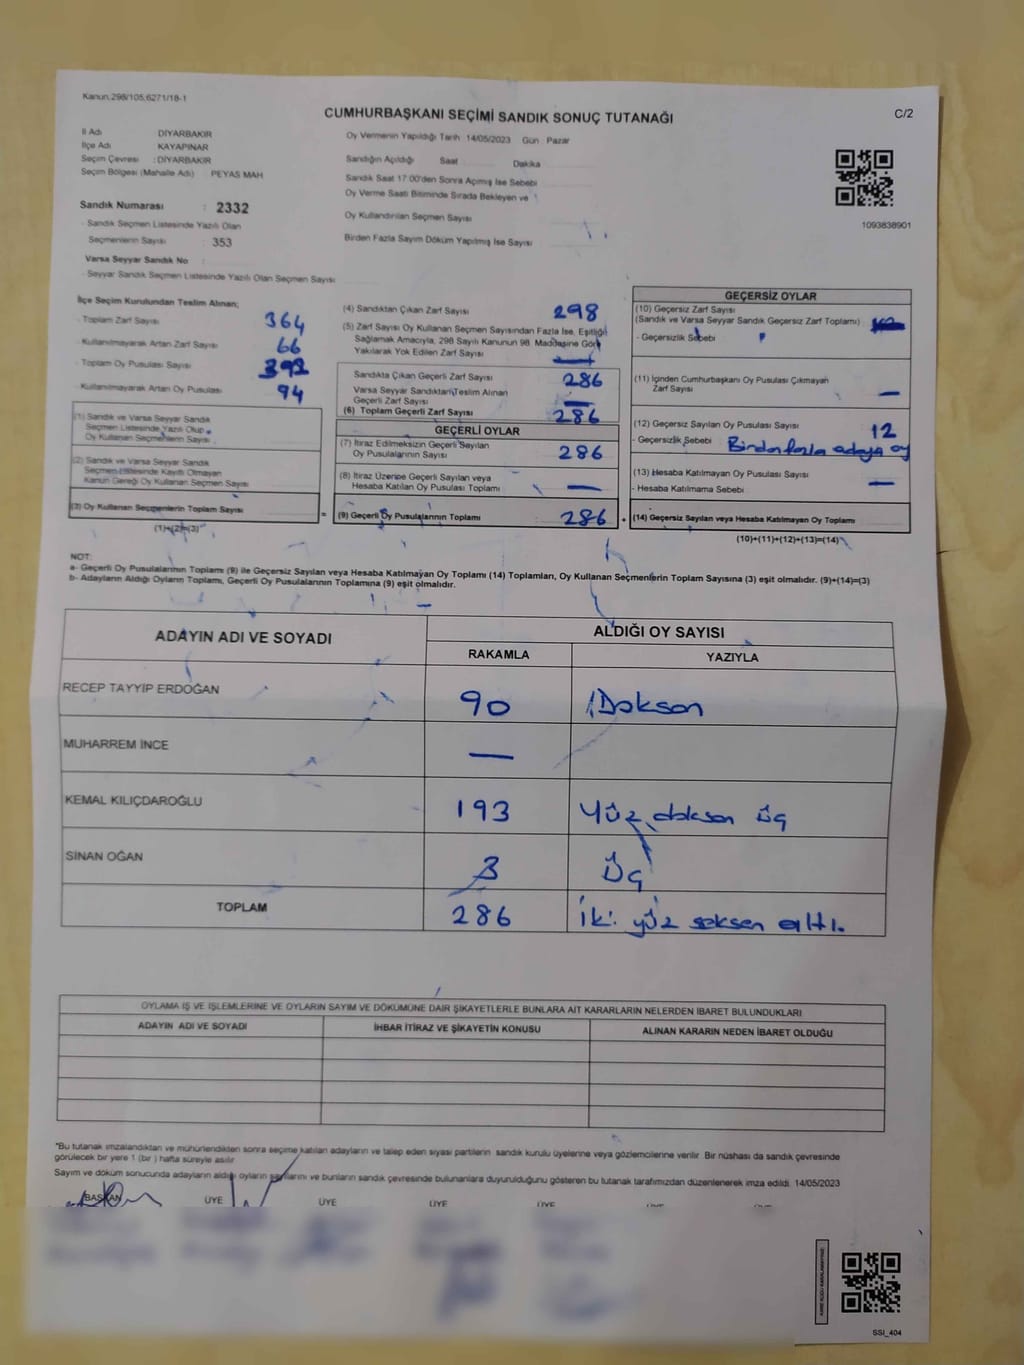 Kanun,298/105,6271/18-1
CUMHURBAŞKANI SEÇİMİ SANDIK SONUÇ TUTANAĞI
C/2
İl Adı DİYARBAKIR
İlçe Adı KAYAPINAR
Seçim Çevresi : DİYARBAKIR
Seçim Bölgesi (Mahalle Adı) PEYAS MAH
Sandık Numarası : 2332
- Sandık Seçmen Listesinde Yazılı Olan
Seçmenlerin Sayısı : 353
Varsa Seyyar Sandık No :
- Seyyar Sandık Seçmen Listesinde Yazılı Olan Seçmen Sayısı
Oy Vermenin Yapıldığı Tarih : 14/05/2023 Gün : Pazar
Sandığın Açıldığı Saat Dakika
Sandık Saat 17:00'den Sonra Açımış İse Sebebi
Oy Verme Saati Bitiminde Sırada Bekleyen ve
Oy Kullandırılan Seçmen Sayısı
Birden Fazla Sayım Döküm Yapılmış İse Sayısı
1093838901
İlçe Seçim Kurulundan Teslim Alınan;
- Toplam Zarf Sayısı 364
- Kullanılmayarak Artan Zarf Sayısı 66
- Toplam Oy Pusulası Sayısı
- Kullanılmayarak Artan Oy Pusulası 94
(1) Sandık ve Varsa Seyyar Sandık
Seçmen Listesinde Yazılı Olup
Oy Kullanan Seçmenlerin Sayısı
(2) Sandık ve Varsa Seyyar Sandık
Seçmen Listesinde Kayıtlı Olmayan
Kanun Gereği Oy Kullanan Seçmen Sayısı
(3) Oy Kullanan Seçmenlerin Toplam Sayısı
(1)+(2)=(3)
(4) Sandıktan Çıkan Zarf Sayısı 298
(5) Zarf Sayısı Oy Kullanan Seçmen Sayısından Fazla İse, Eşitliği
Sağlamak Amacıyla, 298 Sayılı Kanunun 98. Maddesine Göre
Yakılarak Yok Edilen Zarf Sayısı —
Sandıkta Çıkan Geçerli Zarf Sayısı 286
Varsa Seyyar Sandıktan Teslim Alınan
Geçerli Zarf Sayısı —
(6) Toplam Geçerli Zarf Sayısı 286
GEÇERLİ OYLAR
(7) İtiraz Edilmeksizin Geçerli Sayılan
Oy Pusulalarının Sayısı 286
(8) İtiraz Üzerine Geçerli Sayılan veya
Hesaba Katılan Oy Pusulası Toplamı —
= (9) Geçerli Oy Pusulalarının Toplamı 286
GEÇERSİZ OYLAR
(10) Geçersiz Zarf Sayısı
(Sandık ve Varsa Seyyar Sandık Geçersiz Zarf Toplamı)
- Geçersizlik Sebebi
(11) İçinden Cumhurbaşkanı Oy Pusulası Çıkmayan
Zarf Sayısı —
(12) Geçersiz Sayılan Oy Pusulası Sayısı 12
- Geçersizlik Sebebi Birden fazla adaya oy
(13) Hesaba Katılmayan Oy Pusulası Sayısı
- Hesaba Katılmama Sebebi —
+ (14) Geçersiz Sayılan veya Hesaba Katılmayan Oy Toplamı
(10)+(11)+(12)+(13)=(14)
NOT:
a- Geçerli Oy Pusulalarının Toplamı (9) ile Geçersiz Sayılan veya Hesaba Katılmayan Oy Toplamı (14) Toplamları, Oy Kullanan Seçmenlerin Toplam Sayısına (3) eşit olmalıdır. (9)+(14)=(3)
b- Adayların Aldığı Oyların Toplamı, Geçerli Oy Pusulalarının Toplamına (9) eşit olmalıdır.
ADAYIN ADI VE SOYADI ALDIĞI OY SAYISI
RAKAMLA YAZIYLA
RECEP TAYYİP ERDOĞAN 90 Doksan
MUHARREM İNCE —
KEMAL KILIÇDAROĞLU 193 Yüz doksan üç
SİNAN OĞAN 3 Üç
TOPLAM 286 İki yüz seksen altı.
OYLAMA İŞ VE İŞLEMLERİNE VE OYLARIN SAYIM VE DÖKÜMÜNE DAİR ŞİKAYETLERLE BUNLARA AİT KARARLARIN NELERDEN İBARET BULUNDUKLARI
ADAYIN ADI VE SOYADI İHBAR İTİRAZ VE ŞİKAYETİN KONUSU ALINAN KARARIN NEDEN İBARET OLDUĞU
*Bu tutanak imzalandıktan ve mühürlendikten sonra seçime katılan adayların ve talep eden siyasi partilerin sandık kurulu üyelerine veya gözlemcilerine verilir. Bir nüshası da sandık çevresinde
görülecek bir yere 1 (bir ) hafta süreyle asılır.
Sayım ve döküm sonucunda adayların aldığı oyların sayılarını ve bunların sandık çevresinde bulunanlara duyurulduğunu gösteren bu tutanak tarafımızdan düzenlenerek imza edildi. 14/05/2023
BAŞKAN ÜYE ÜYE ÜYE ÜYE ÜYE
SSI_404